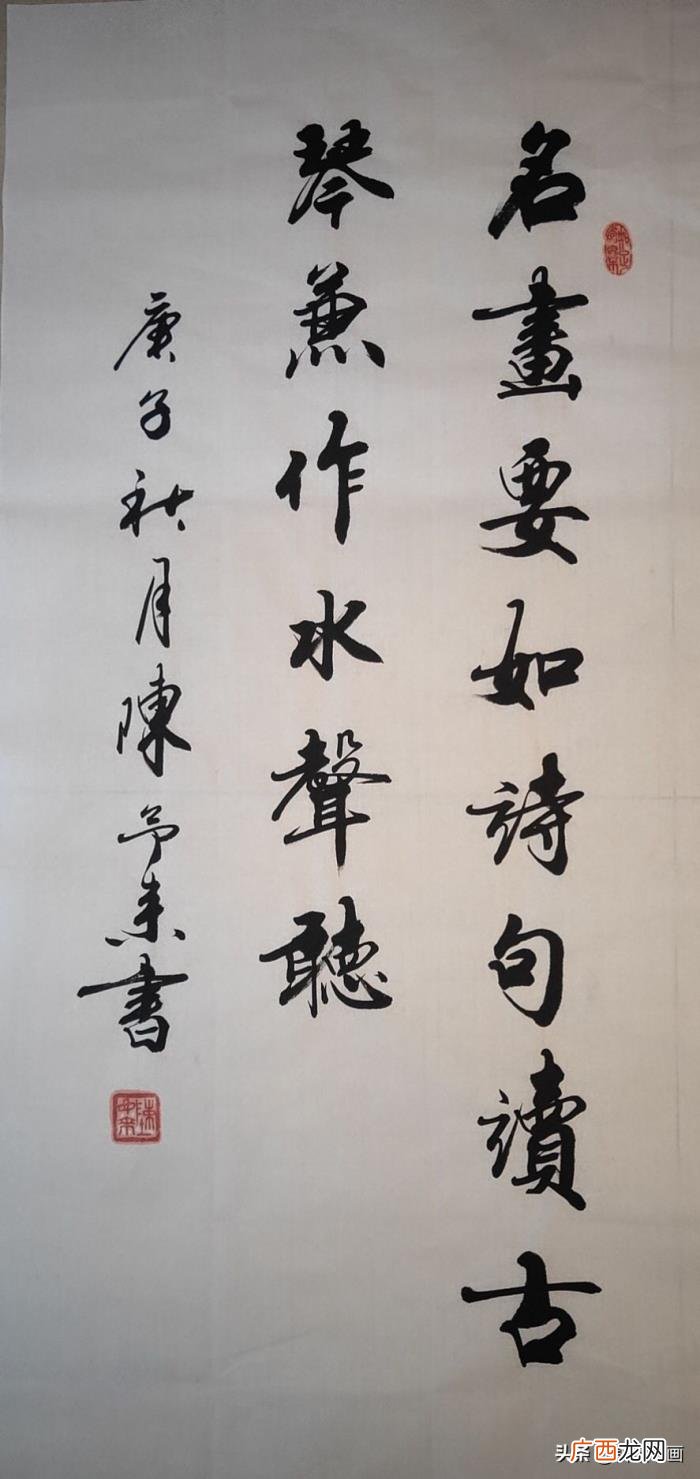 名畫要如詩句讀古
琴兼作水聲聽
庚子秋月陳予来書
广西龙网
头条 画